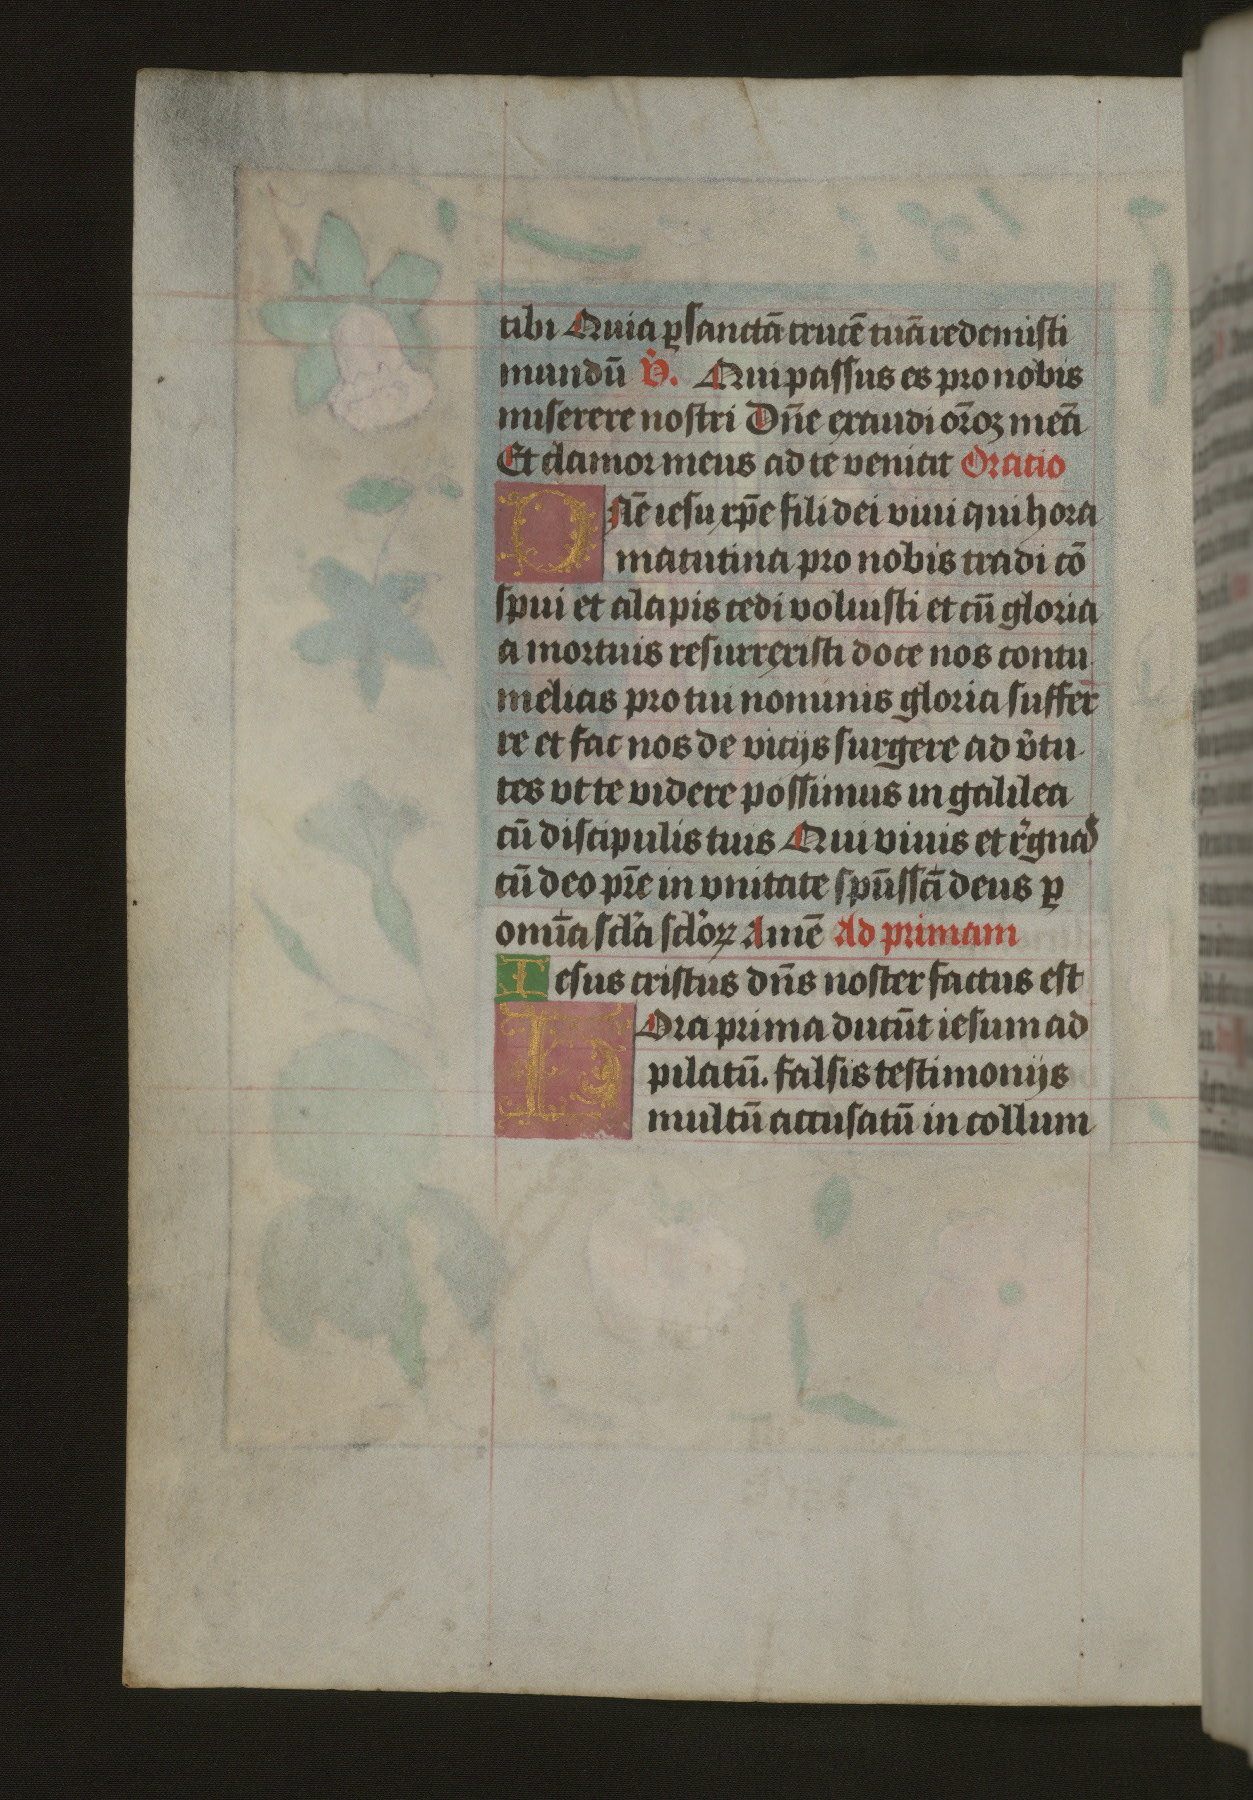 tibi Quia ꝑ sanctā crucē tuā redemisti
mundū ℣. Qui passus es pro nobis
miserere nostri Dn̄e exaudi or̄oꝫ meā
Et clamor meus ad te veniat Oratio
Dn̄e iesu xp̄e fili dei viui qui hora
matutina pro nobis tradi cō
spui et alapis cedi voluisti et cū gloria
a mortuis resurrexisti doce nos contu
melias pro tui nominis gloria suffer̄
re et fac nos de vicijs surgere ad v̉tu
tes vt te videre possimus in galilea
cū discipulis tuis Qui viuis et r̉gnas
cū deo pr̄e in vnitate sp̄ūs sc̄ti deus ꝑ
omīa scl̉a scl̉oꝝ Amē Ad primam
Iesus cristus dn̄s noster factus est
Hora prima ducūt iesum ad
pilatū. falsis testimonijs
multū accusatū in collum